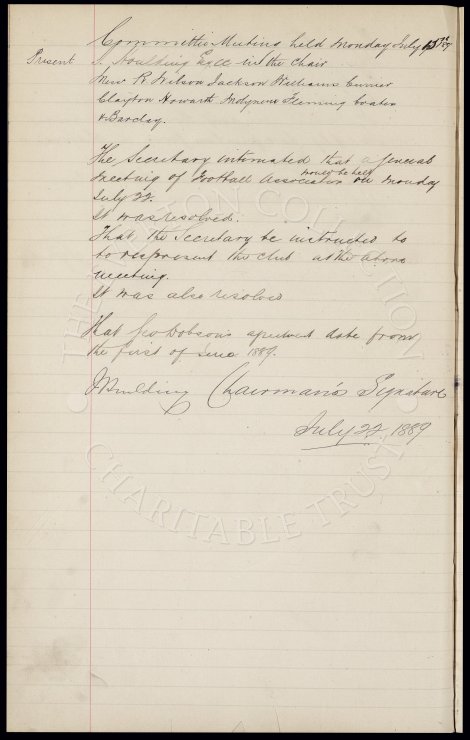 Committee Meeting held Monday July 15th /89
Present J. Esqre in the Chair
Messrs R. Wilson Jackson Williams Currier
Clayton Howarth Fleming Coates
& Barclay.
The Secretary intimated that a general
meeting of Football Association would be held on Monday
July 22.
It was resolved.
That the Secretary be instructed to
to respresent the club at the above
meeting.
It was also resolved
That Geo Dobson's agreement date from
the first of 1889.
Chairman's Signature
July 22. 1889
THE EVERTON COLLECTION
CHARITABLE TRUST